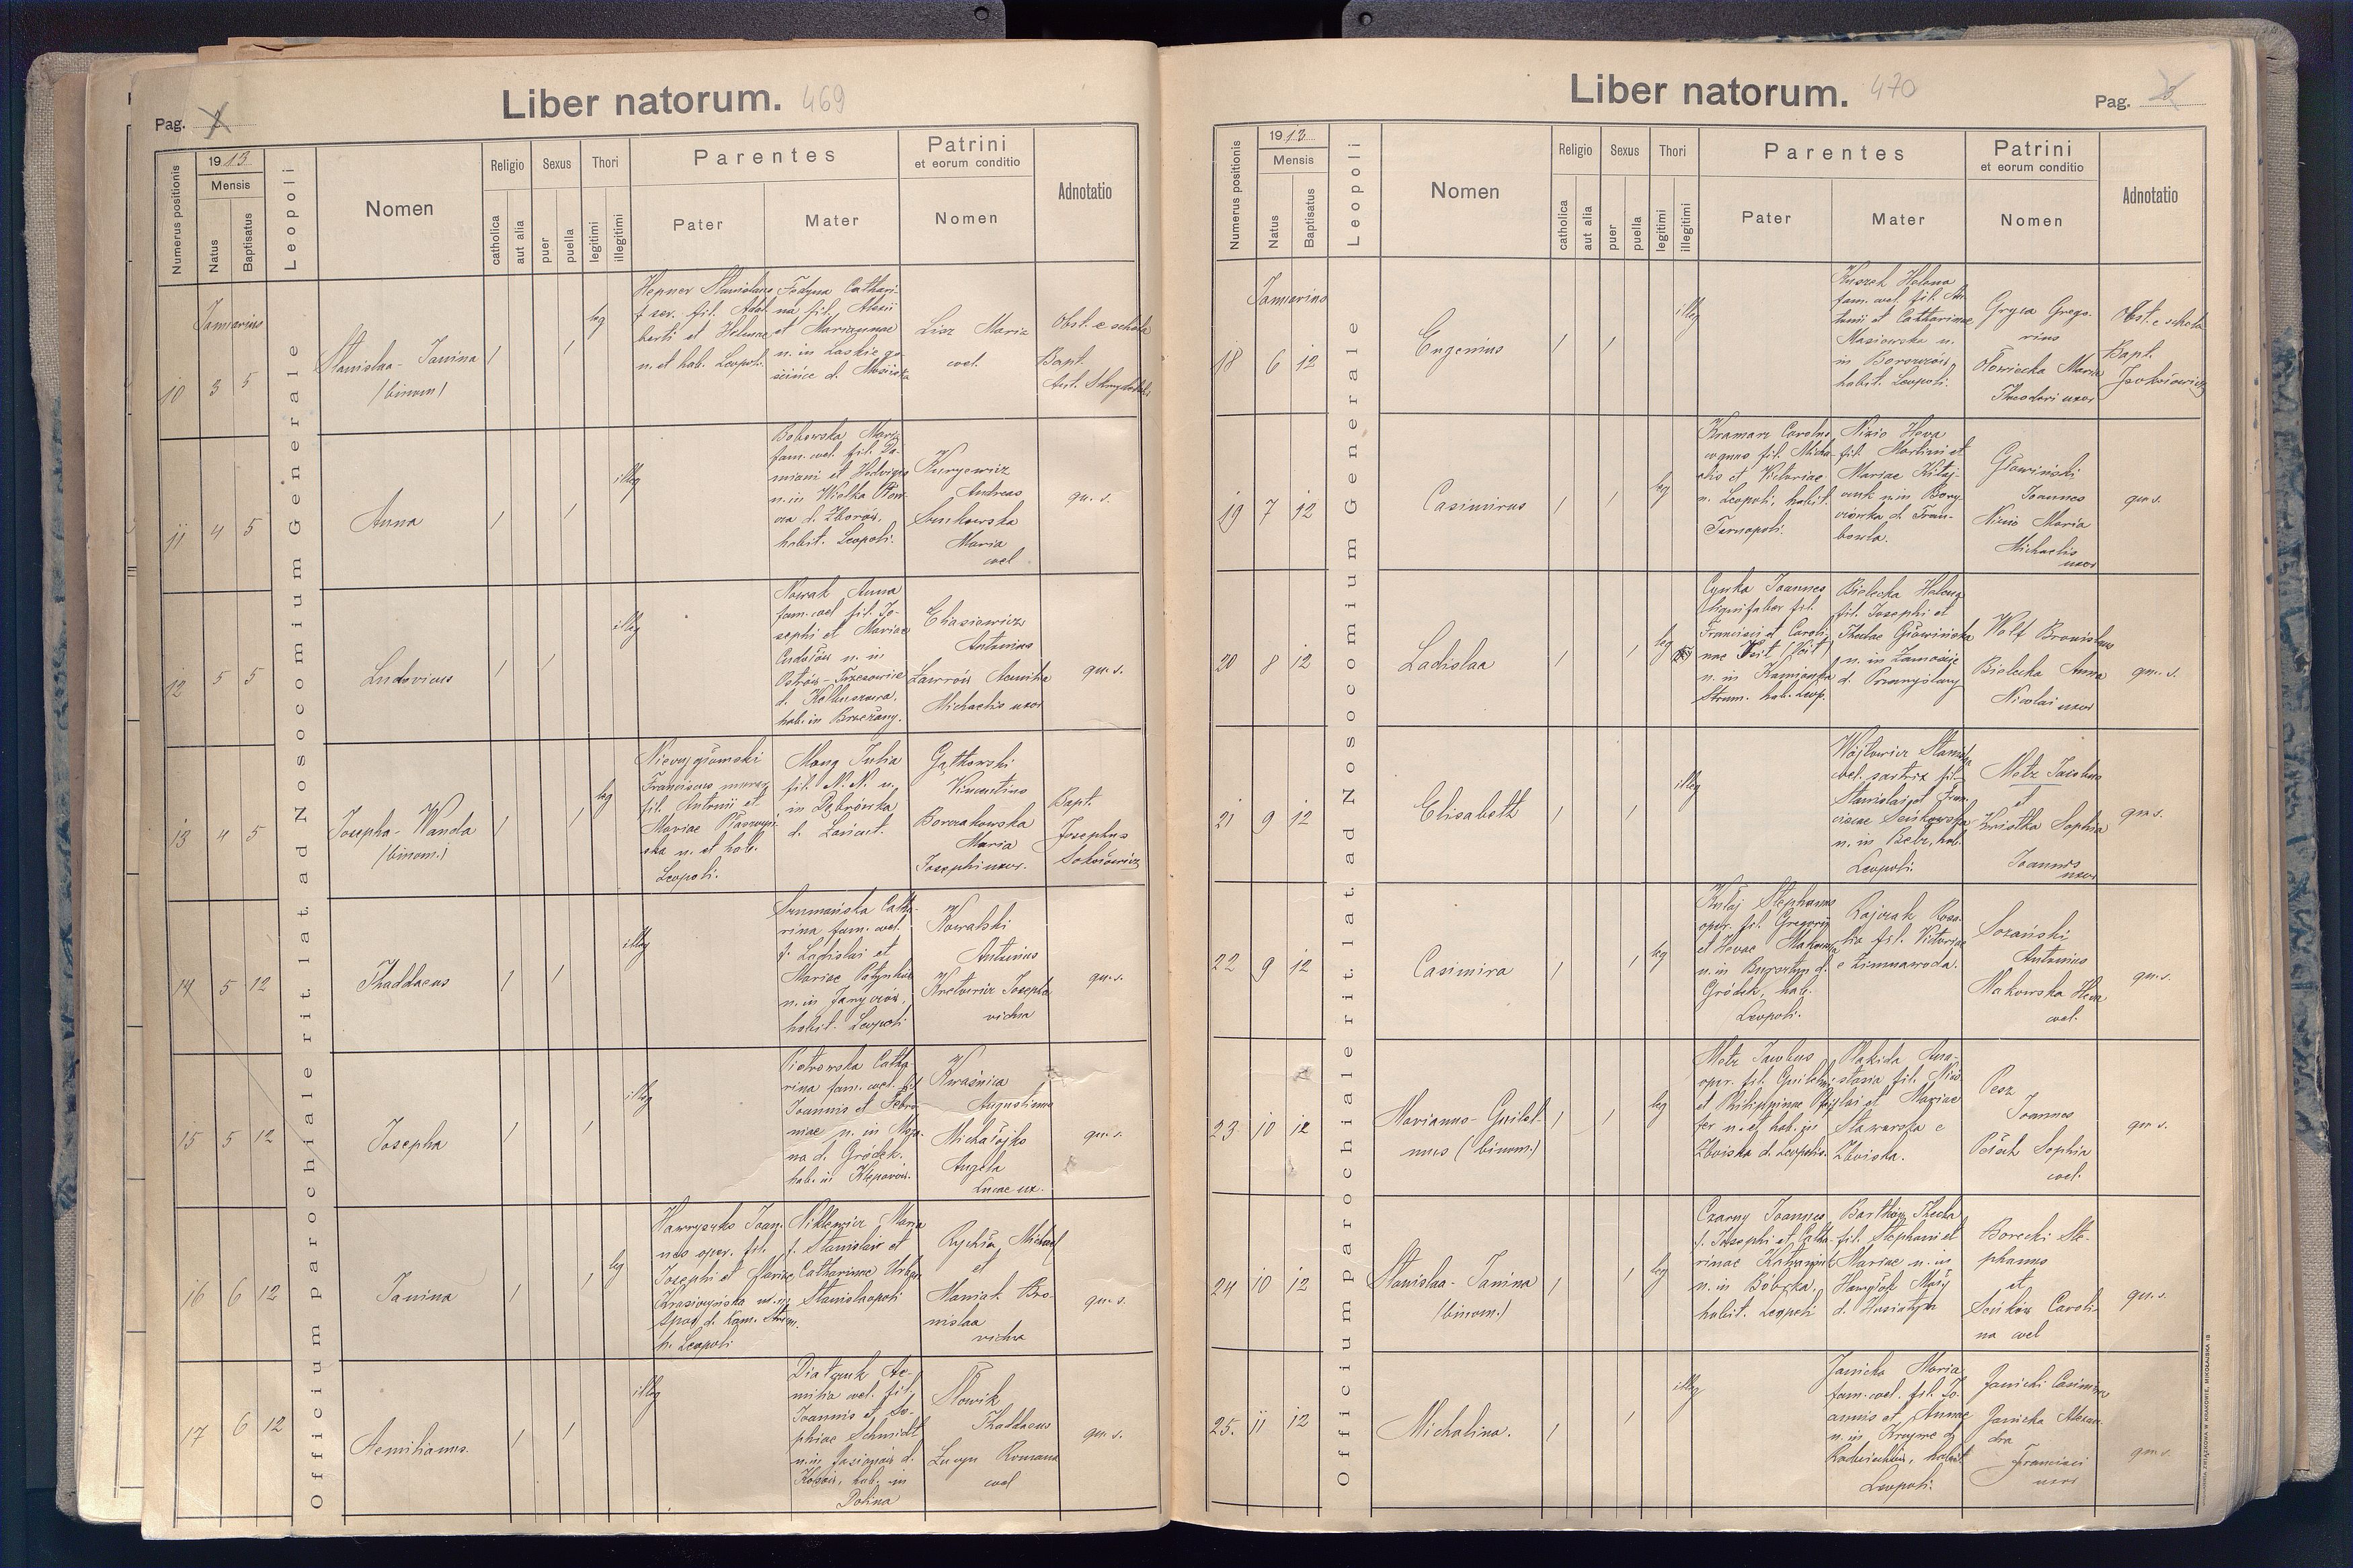 Liber natorum. 469
Pag.
Numerus positionis
1913
Mensis
Natus
Baptisatus
Leopoli
Nomen
Religio
catholica
aut alia
Sexus
puer
puella
Thori
legitimi
illegitimi
Parentes
Pater
Mater
Patrini
et eorum conditio
Nomen
Adnotatio
Officium parochiale rit. lat. ad Nosocomium Generale
Januarius
10 3 5
Stanislaa - Janina
(binom)
leg
Hepner Stanislaus
f. ser. fil. Adal
berti et Helenae
n. et hab. Leopoli.
Fedyna Cathari
na fil. Alexii
et Mariannae
n. in Laskie go
ścińce d. Mościska
Lisz Maria
coel.
Obst. e schola
Bapt.
11 4 5
Anna
illeg
Bobowska Maria
fam. coel. fil. Da-
miani et Hedvigis
n. in Wolka
d. Zborów,
habit. Leopoli.
Kurycwicz
Andreas
Maria
coel
qu. s.
12 5 5
Ludovicus
illeg
Nowak Anna
fam. coel fil. Jo-
sephi et Mariae
n. in
Ostrów-
d. Kolbuszowa,
hab. in Brzeżany.
Eliasiewicz
Antonius
Zawrów
Michaelis uxor
qu. s.
13 4 5
Josepha - Wanda
(binom.)
leg
Franciscus murar.
fil. Antonii et
Mariae
ska n. et hab.
Leopoli.
Mona Julia
fil. N. N. n.
in Dąbrówka
d. Łańcut.
Gątkowski
Vincentius
Borzakowska
Maria
Josephi uxor.
Bapt.
Josephus
Sokołowicz
14 5 12
Thaddaeus
illeg
Szumańska Catha-
rina fam. coel.
f. Ladislai et
Mariae
n. in Janczów,
habit. Leopoli
Kowalski
Antonius
Josepha
vidua
qu. s.
15 5 12
Josepha
illeg
Piotrowska Catha
rina fam. coel. fil
Joannis et Febro
niae n. in Msza-
na d. Gródek.
hab. in Kleparów.
Kwaśnica
Augustinus
Michałojko
Angela
Lucae ux.
qu. s.
16 6 12
Janina
leg
Hawryszko Joan-
nes oper. fil.
Josephi et Mariae
Krasiczyńska n. in
Spas d. Kam. Strum.
h. Leopoli
Niklewicz Maria
f. Stanislai et
Catharinae Urban
Stanislaopoli
Rychła Michael
et
Maniak Bro-
nislaa
vidua
qu. s.
17 6 12
Aemilianus.
illeg
Diatczuk Ae-
milia coel. fil.
Joannis et So-
phiae Schmidt
n. in Jasionów d.
Kosów, hab. in
Dolina
Słowik
Thaddaeus
Lucyn Romana
coel
qu. s.
Liber natorum. 470
Pag.
Numerus positionis
1913
Mensis
Natus
Baptisatus
Leopoli
Nomen
Religio
catholica
aut alia
Sexus
puer
puella
Thori
legitimi
illegitimi
Parentes
Pater
Mater
Patrini
et eorum conditio
Nomen
Adnotatio
Officium parochiale rit. lat. ad Nosocomium Generale
Januarius
18 6 12
Eugenius
illeg
Kuszek Helena
fam. coel. fil. An
tonii et Catharinae
Masiowska n.
in Borszczów,
habit. Leopoli.
Gryca Grego-
rius
Maria
Theodori uxor
Obst. e schola
Bapt.
19 7 12
Casimirus
leg
Kramarz Carolus
fil. Micha-
elis et Victoriae
n. Leopoli, habit.
Tarnopoli.
Nizio Heva
fil. Martini et
Mariae
n. in Bory-
czówka d. Trem-
bowla.
Głowiński
Joannes
Nizio Maria
Michaelis
uxor
qu s.
20 8 12
Ladislaa
leg
Cyrka Joannes
lignifaber fil.
Francisci et Caroli-
nae Voit (Voit)
n. in Kamionka
Strum. hab. Leop.
Bielecka Helena
fil. Josephi et
Theclae Głowińska
n. in Zamoście
d. Przemyślany
Wolf Bronislaus
Bielecka Anna
Nicolai uxor
qu. s.
21 9 12
Elisabeth
illeg
Wójtowicz Stanisla
coel. sartrix fil.
Stanislai et Fran
ciscae Seńkowska
n. in Bełz, hab.
Leopoli.
Metz Jacobus
et
Kristka Sophia
Joannis
uxor
qu s.
22 9 12
Casimira
leg
Kulaj Stephanus
oper. fil. Gregorii
et Hevae Makowska
n. in d.
Gródek, hab.
Leopoli.
Rajczak Rosa-
lia fil. Victoriae
e Zimnawoda.
Sozański
Antonius
Makowska Heva
coel.
qu. s.
23 10 12
Marianus - Guilel-
mus (binom.)
leg
Metz Jacobus
oper. fil. Guilelmi
et Philippinae
fer n. et hab. in
Zboiska d. Leopolis.
Plakida Ana-
stasia fil. Nico-
lai et Mariae
Stawarska e
Zboiska.
Pesz
Joannes
Sophia
coel.
qu s.
24 10 12
Stanislaa - Janina
(binom.)
leg
Czarny Joannes
f. Josephi et Catha-
rinae
n. in Bóbrka.
habit. Leopoli
Thecla
fil. Stephani et
Mariae n. in
d. Husiatyn
Borecki Ste-
phanus
et
Seńków Caroli-
na coel
qu. s.
25. 11 12
Michalina.
illeg
Janicka Maria
fam. coel. fil. Jo-
annis et Annae
n. in
Radziechów, habit.
Leopoli.
Janicki Casimirus
Janicka Alexan-
dra
Francisci
uxor
qu s.